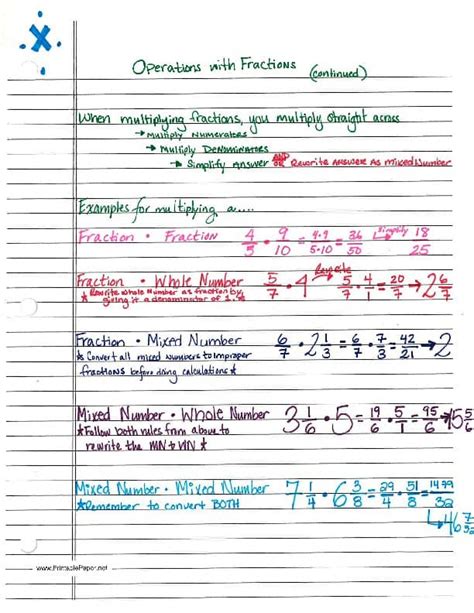 Operations with Fractions (continued)
When multiplying fractions, you multiply straight across
→ Multiply Numerators
→ Multiply Denominators
→ Simplify Answer AND/OR Rewrite Answer As Mixed Number
Examples for multiplying a....
Fraction · Fraction 4/5 · 9/10 = 4·9/5·10 = 36/50 Simplify → 18/25
Fraction · Whole Number 5/7 · 4 Rewrite → 5/7 · 4/1 = 20/7 → 2 6/7
★ Rewrite whole Number as fraction by
giving it a denominator of 1. ★
Fraction · Mixed Number 6/7 · 2 1/3 = 6/7 · 7/3 = 42/21 → 2
★ Convert all mixed numbers to improper
fractions before doing calculations ★
Mixed Number · Whole Number 3 1/6 · 5 = 19/6 · 5/1 = 95/6 → 15 5/6
★ Follow both rules from above to
rewrite the MN & WN ★
Mixed Number · Mixed Number 7 1/4 · 6 3/8 = 29/4 · 51/8 = 1479/32
★ Remember to convert BOTH
↳ 46 7/32
www.PrintablePaper.net